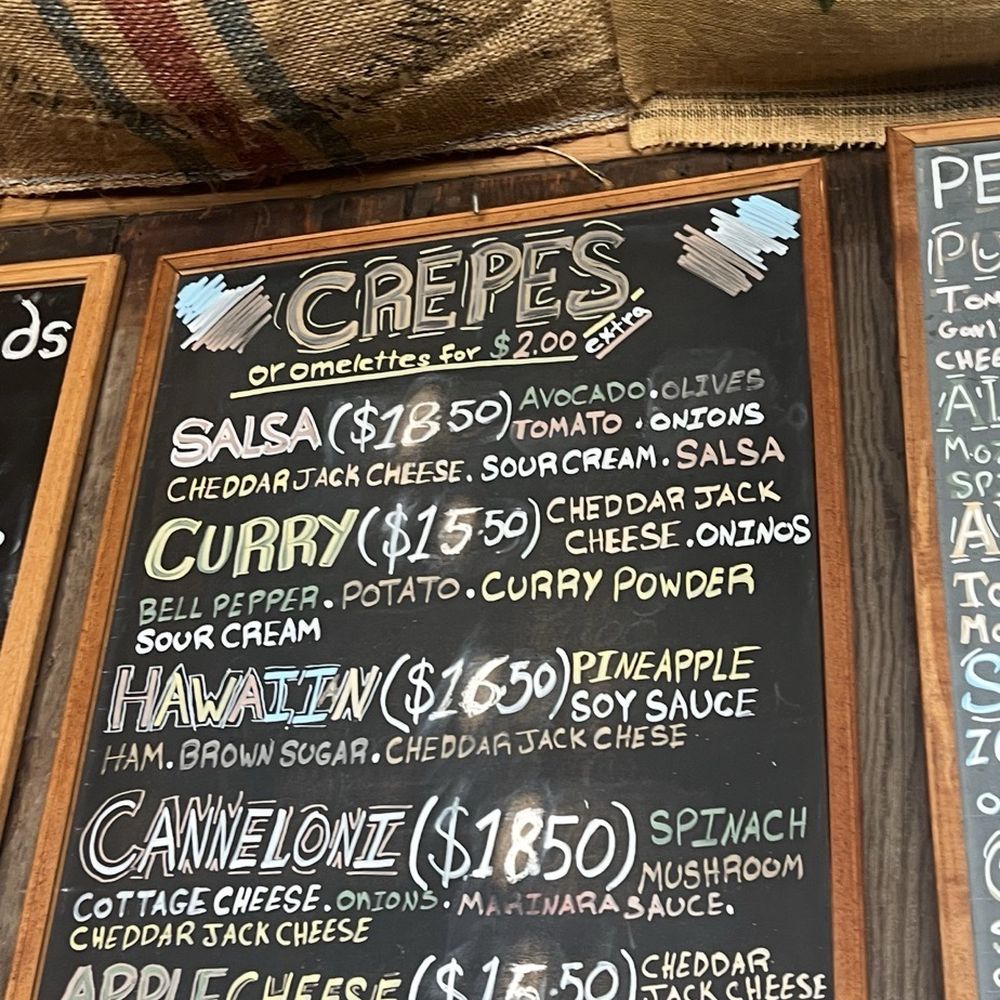 ds
CRÊPES
or omelettes for $2.00 extra
SALSA ($18.50) AVOCADO. OLIVES
TOMATO . ONIONS
CHEDDAR JACK CHEESE. SOUR CREAM. SALSA
CURRY ($15.50) CHEDDAR JACK
CHEESE. ONINOS
BELL PEPPER. POTATO. CURRY POWDER
SOUR CREAM
HAWAIIN ($16.50) PINEAPPLE
SOY SAUCE
HAM. BROWN SUGAR. CHEDDAR JACK CHESE
CANNELONI ($18.50) SPINACH
MUSHROOM
COTTAGE CHEESE. ONIONS. MARINARA SAUCE.
CHEDDAR JACK CHEESE
APPLE CHEESE ($15.50) CHEDDAR
JACK CHEESE
PE